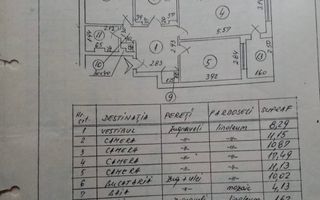 4
5.57
11
1
2.83
5
2.84
3.92
1.60
10
9
Nr. crt. DESTINAȚIA PEREȚI PARDOSELI SUPRAF
1 VESTIBUL zugraveli linoleum 8,29
2 CAMERA -"- -"- 11,15
3 CAMERA -"- -"- 10,67
4 CAMERA -"- -"- 17,49
5 CAMERA -"- -"- 11,13
6 BUCATARIA zug+ulei -"- 10,02
7 BAIA -"- mozaic 4,13
linoleum